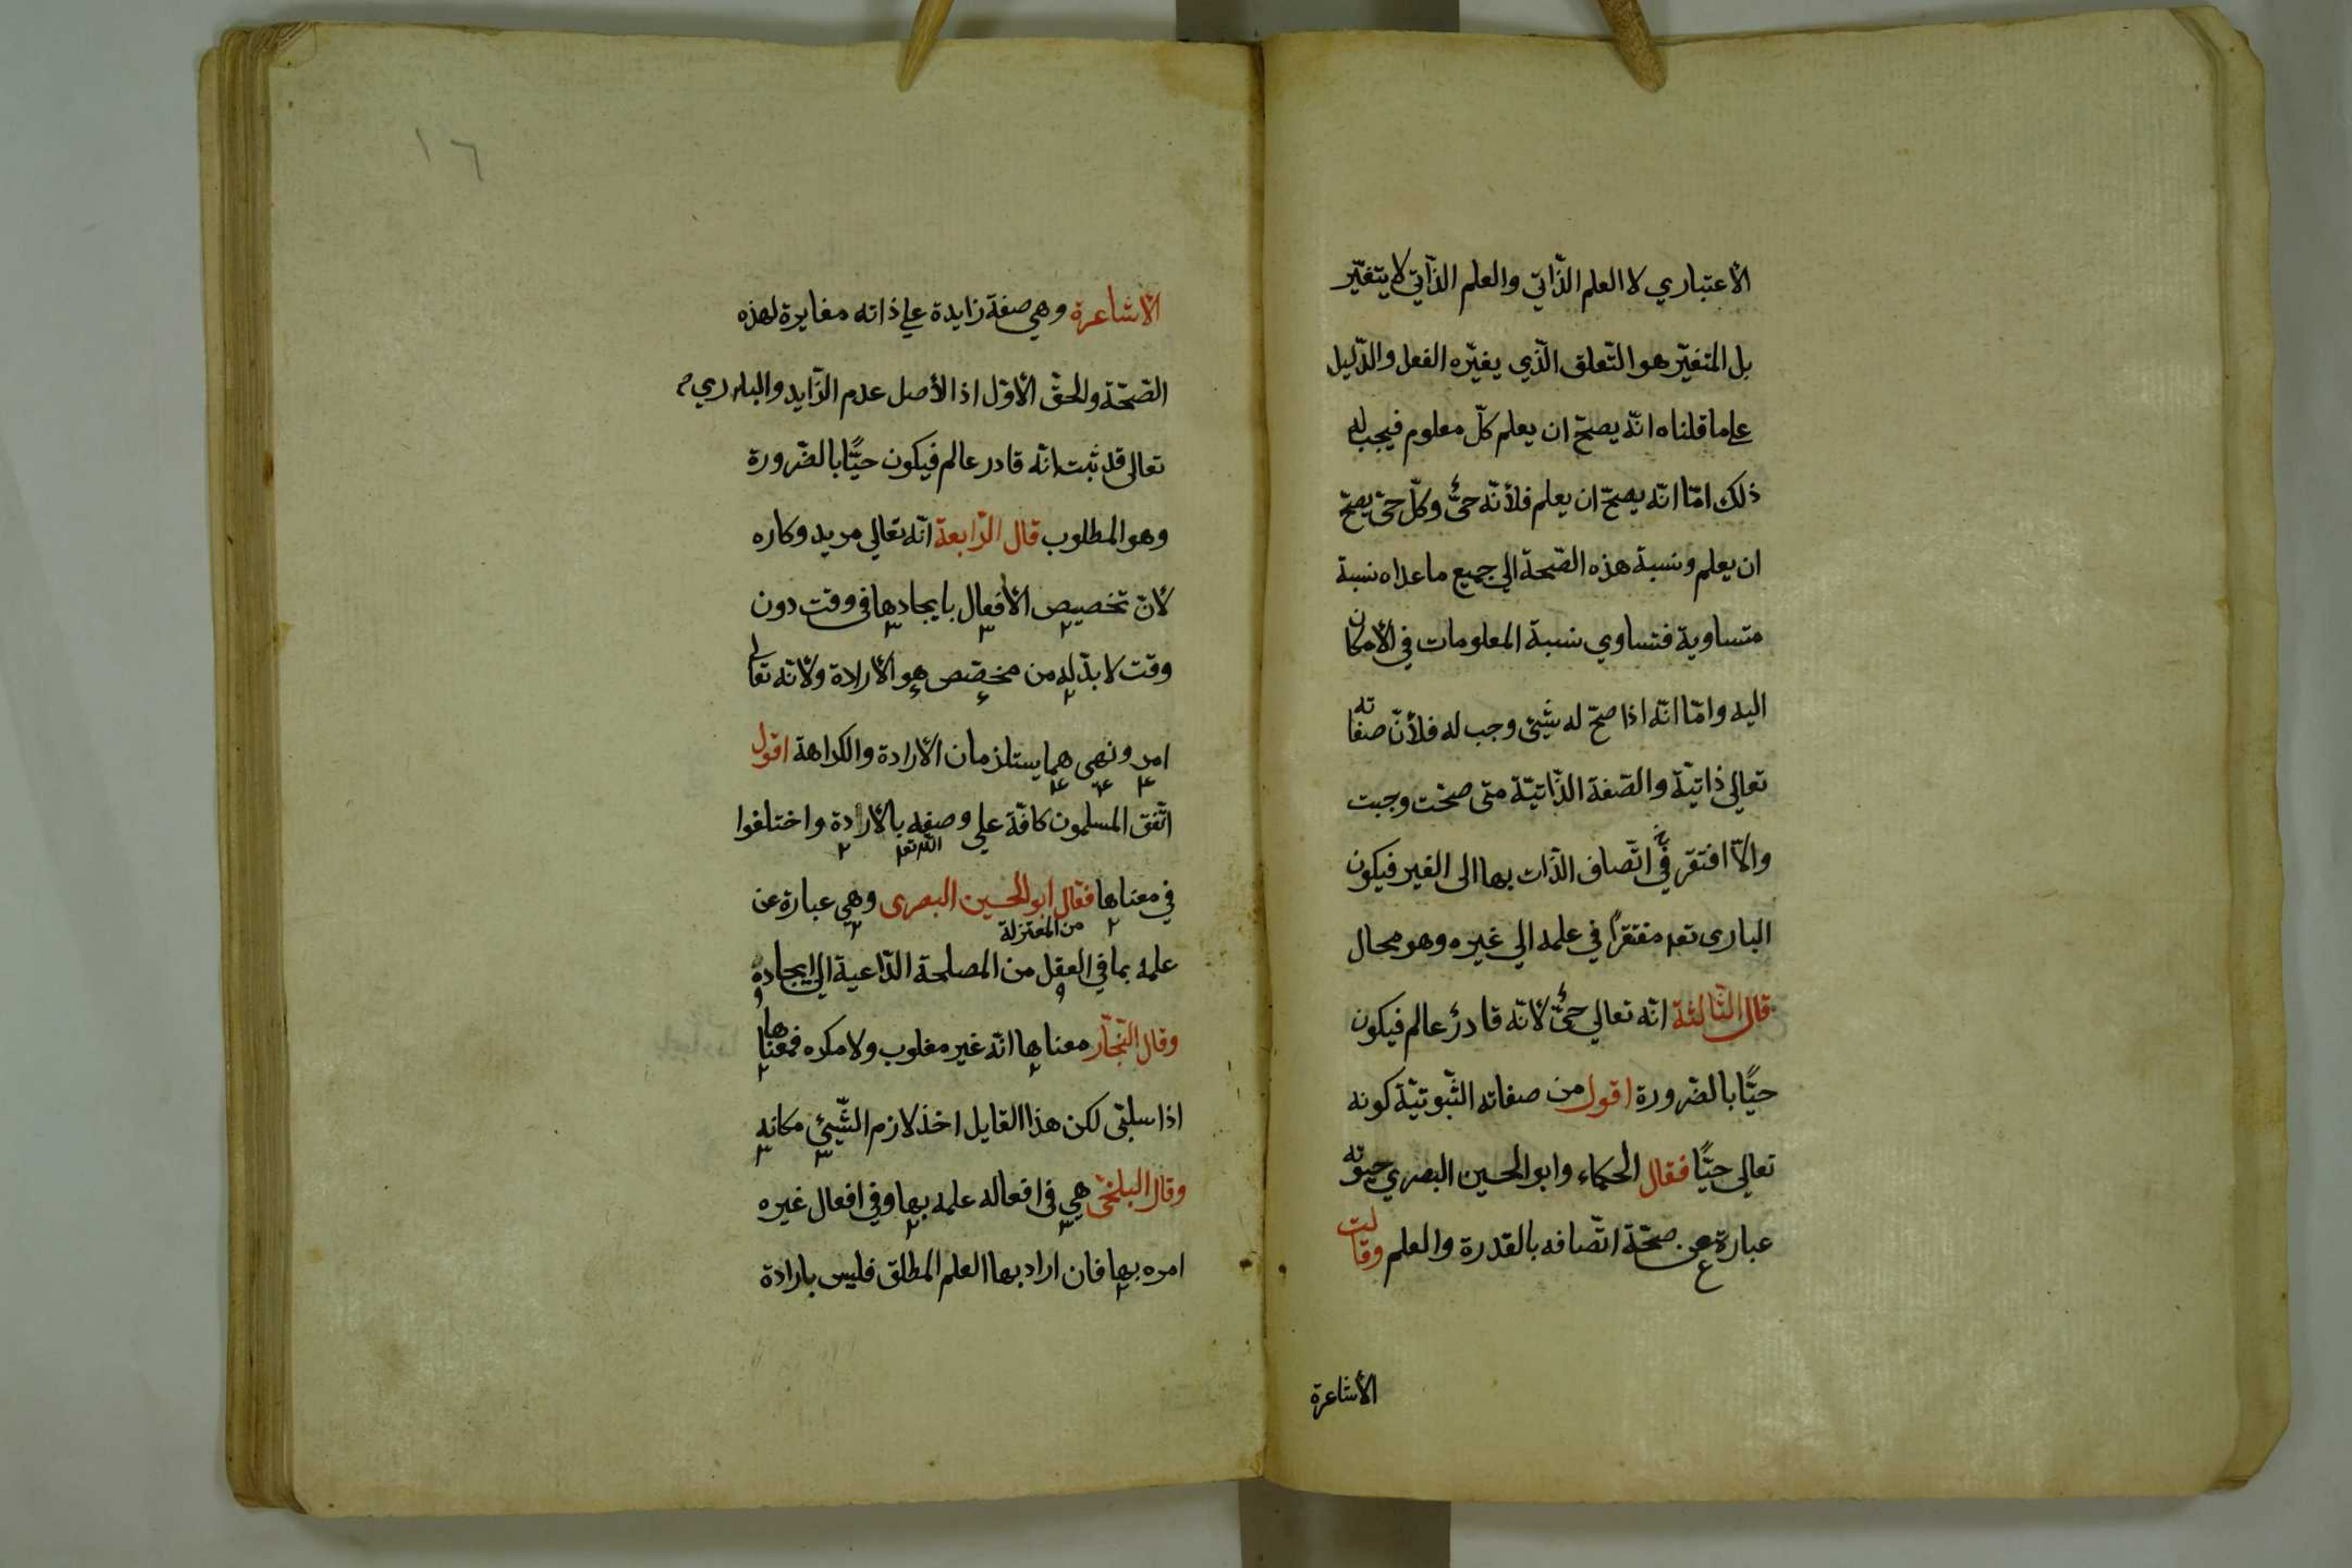 الأعتباري لا العلم الذّاتي والعلم الذّاتي لا يتغيّر
بل المتغيّر هو التّعلق الّذي يغيّره الفعل والدّليل
علي ما قلناه انّه يصحّ ان يعلم كلّ معلوم فيجب له
ذلك امّا انّه يصحّ ان يعلم فلأنّه حيٌّ وكلّ حيّ يصحّ
ان يعلم ونسبة هذه الصّحة الي جميع ما عداه نسبة
متساوية فتساوي نسبة المعلومات في الأمكان
اليه وامّا انّه اذا صحّ له شيئ وجب له فلأنّ صفاته
تعالي ذاتيّة والصّفة الذّاتيّة متى صحّت وجبت
والّا افتقر في اتّصاف الذّات بها الى الغير فيكون
البارى تعه مفتقرًا في علمه الي غيره وهو محال
قال الثّالثة انّه تعالي حيٌّ لأنّه قادرٌ عالم فيكون
حيًّا بالضّرورة اقول من صفاته الثّبوتيّة كونه
تعالي حيًّا فقال الحكماء وابو الحسين البصري حيوته
عبارة عن صحّة اتّصافه بالقدرة والعلم وقالت
الأشاعرة
١٦
الأشاعرة وهي صفة زايدة علي ذاته مغايرة لهذه
الصّحّة والحقّ الأوّل اذ الأصل عدم الزّايد والباري
تعالى قد ثبت انّه قادر عالم فيكون حيًّا بالضّرورة
وهو المطلوب قال الرّابعة انّه تعالي مريد وكاره
لأنّ تخصيص الأفعال بايجادها في وقت دون
وقت لا بدّ له من مخصّص هو الأرادة ولأنّه تعالي
امر ونهى هما يستلزمان الأرادة والكراهة اقول
اتّفق المسلمون كافّة علي وصفه بالأرادة واختلفوا
الله تعه
في معناها فقال ابو الحسين البصرى وهي عبارة عن
من المعتزلة
علمه بما في العقل من المصلحة الدّاعية الي ايجاده
وقال النّجّار معناها انّه غير مغلوب ولا مكره فمعناها
اذا سلبّى لكن هذا القايل اخذ لازم الشّيئ مكانه
وقال البلخيّ هي في افعاله علمه بها وفي افعال غيره
امره بها فان اراد بها العلم المطلق فليس بارادة